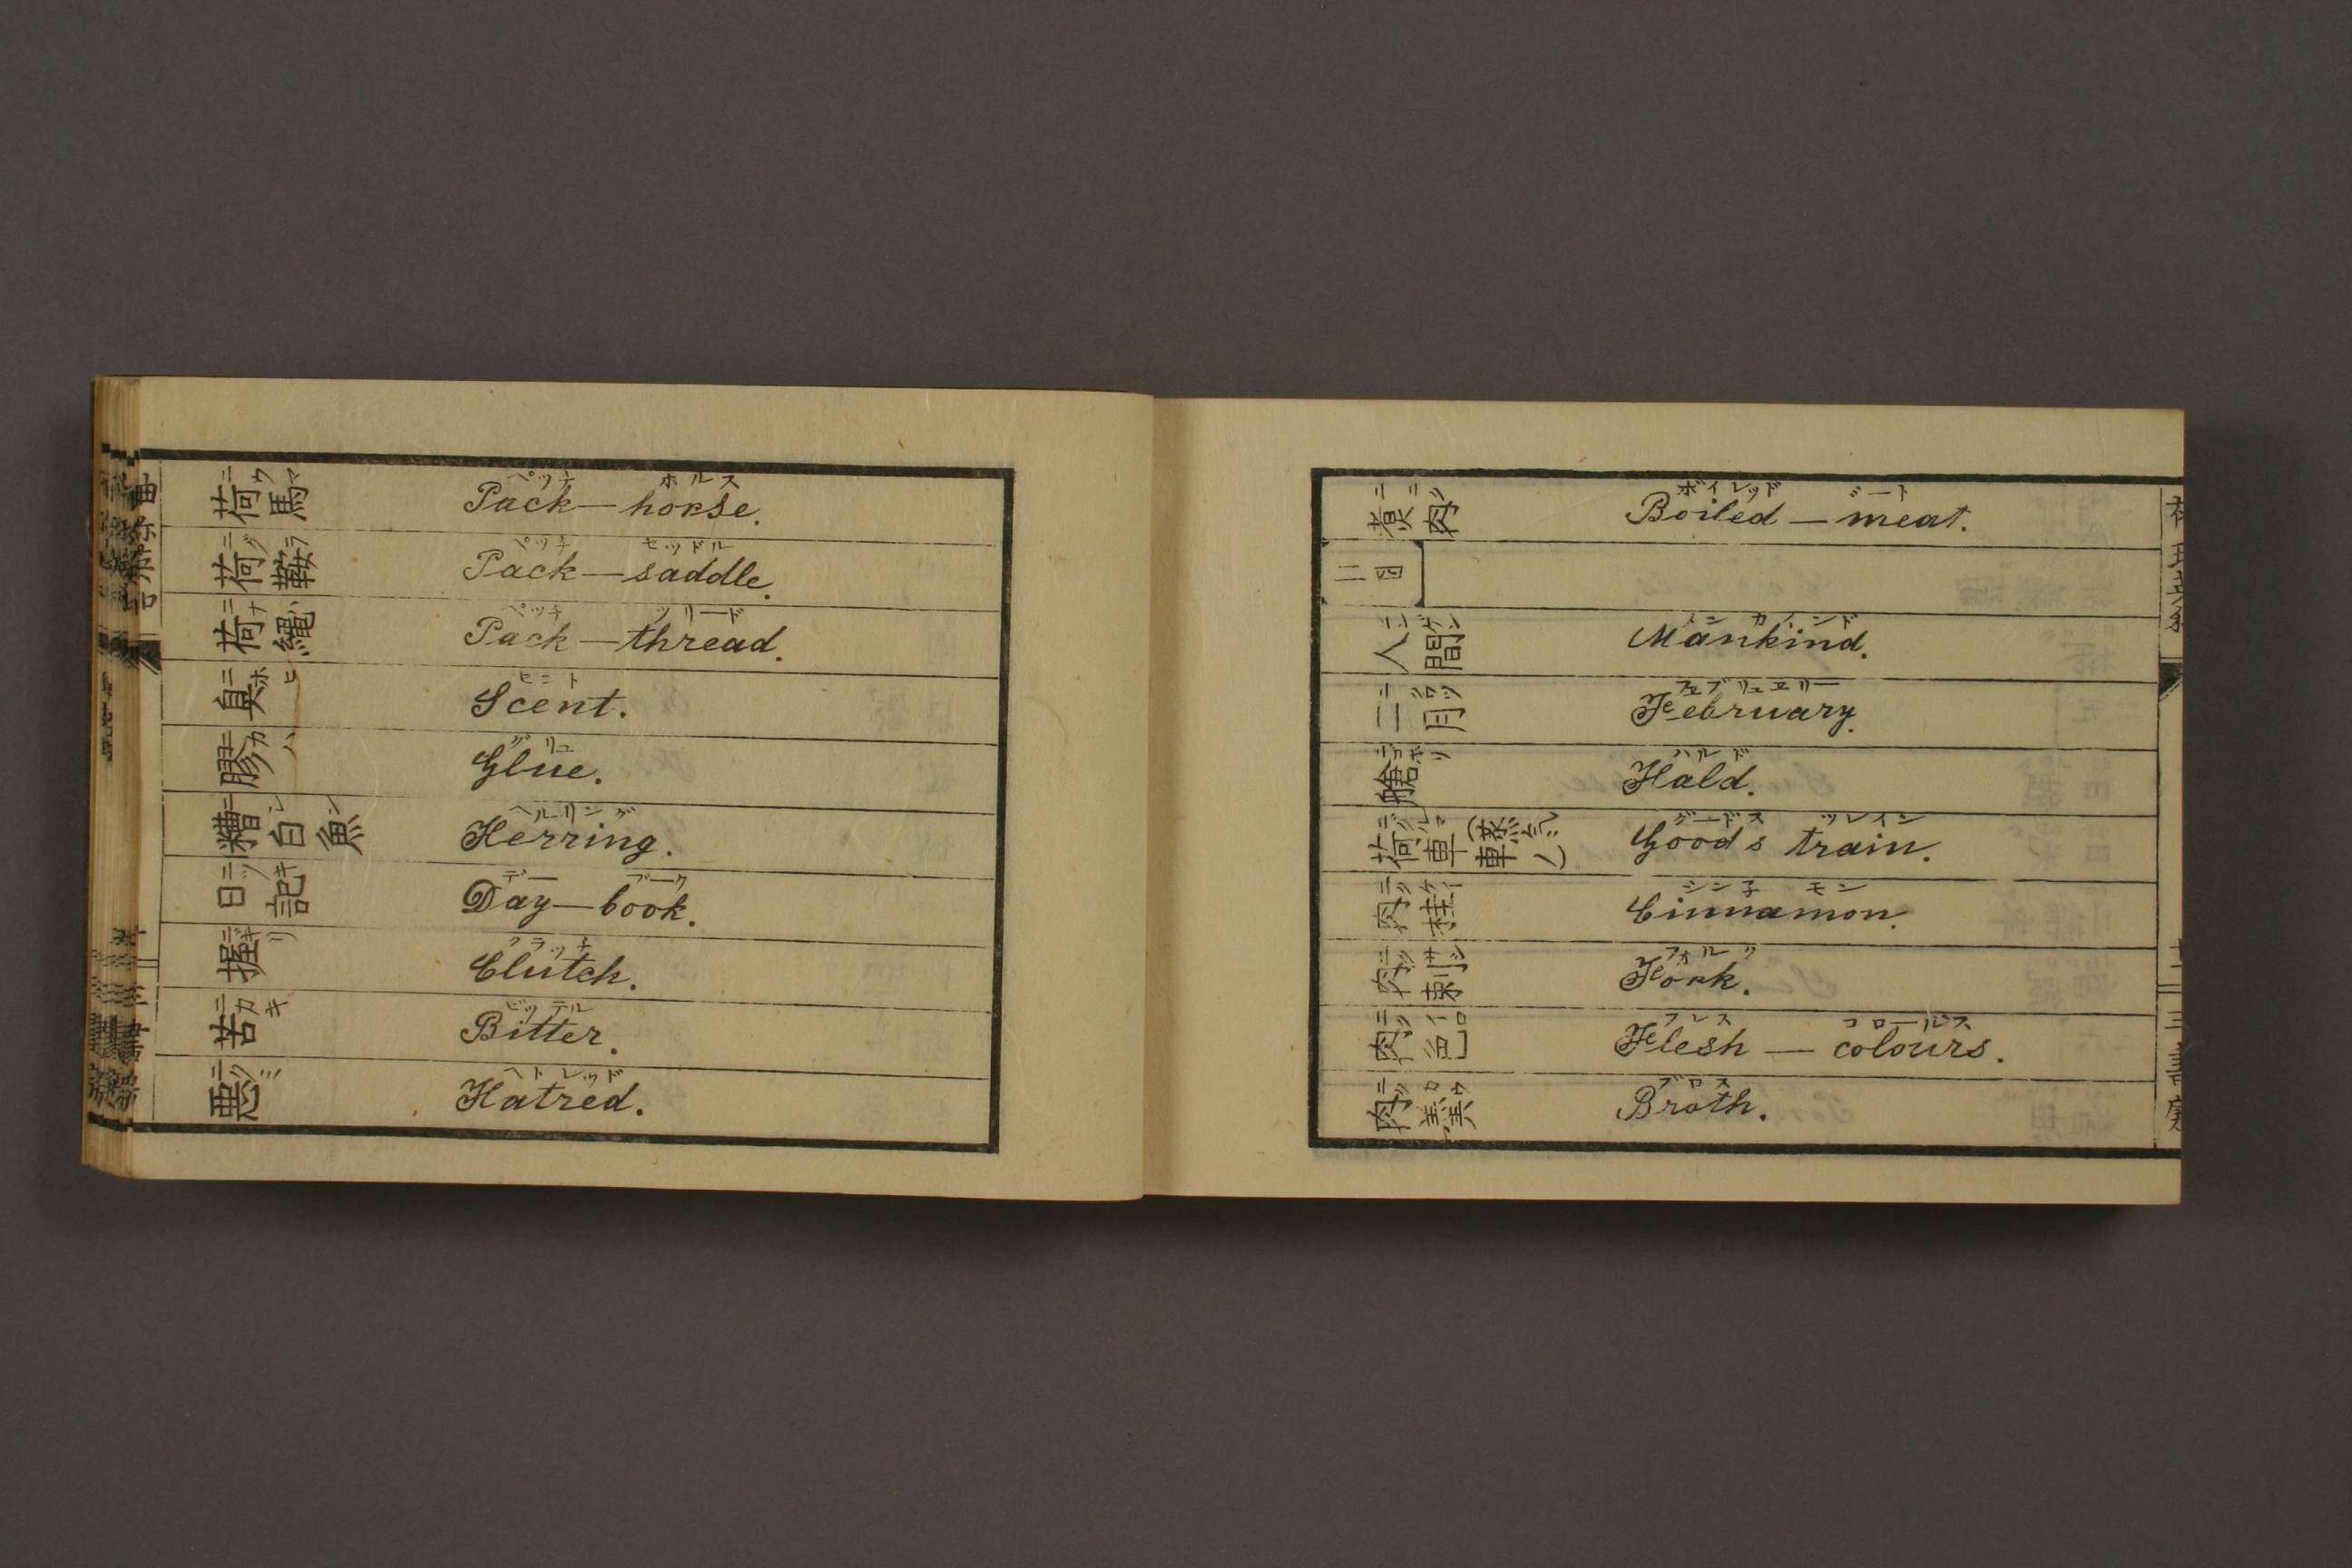 荷馬 ニウマ Pack—horse. ペッチ ホルス
荷鞍 ニグラ Pack—saddle. ペッチ セッドル
荷縄 ニナハ Pack—thread. ペッチ ツリード
臭 ニホヒ Scent. セニト
膠 ニカハ Glue. グリュ
糟白魚 ニシン Herring. ヘルリング
日記 ニッキ Day—book. デー ブーク
握 ニギリ Clutch. クラッチ
苦 ニカキ Bitter. ビッテル
悪 ニクミ Hatred. ヘトレッド
煮肉 ニニク Boiled—meat. ボイレッド ミート
二四
人間 ニンゲン Mankind. メンカインド
二月 ニグワツ February. フェブリュエリー
艙 Hald. ハルド
荷車 (蒸気車ノ) ニグルマ Goods train. グードス ツレイン
肉桂 ニッケイ Cinnamon. シン子モン
肉刺 ニクサシ Fork. フォルク
肉色 ニクイロ Flesh—colours. フレス コロールス
肉羹 Broth. ブロス